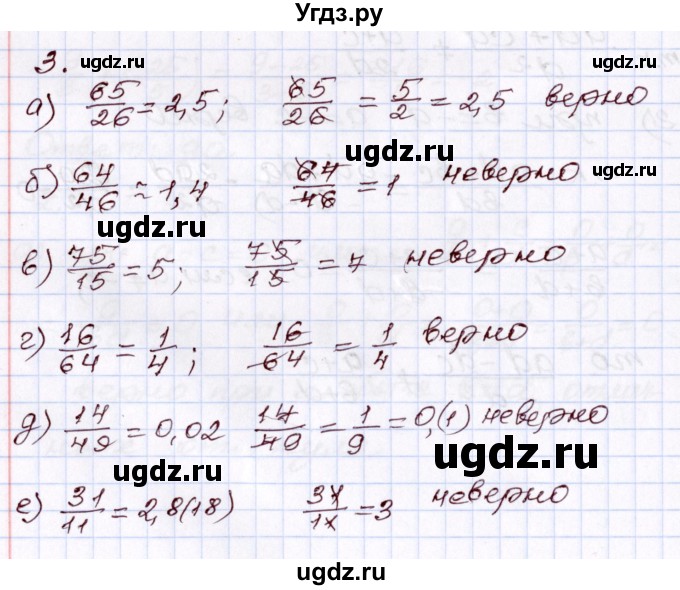 Угдз.ру
3. udgz.ru udgz.ru
а) 65/26 = 2,5; 65/26 = 5/2 = 2,5 верно
ugdz.ru
б) 64/46 ≈ 1,4 64/46 = 1 неверно
ugdz.ru ugdz.ru
в) 75/15 = 5; 75/15 = 7 неверно
г) 16/64 = 1/4; 16/64 = 1/4 верно
ugdz.ru ugdz.ru
д) 14/49 = 0,02 14/49 = 1/9 = 0,(1) неверно
ugdz.ru ugdz.ru
е) 31/11 = 2,8(18) 31/11 = 3 неверно
ugdz.ru